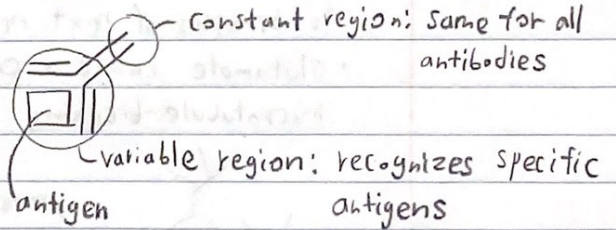 Constant region: same for all
antibodies
variable region: recognizes specific
antigen
antigens